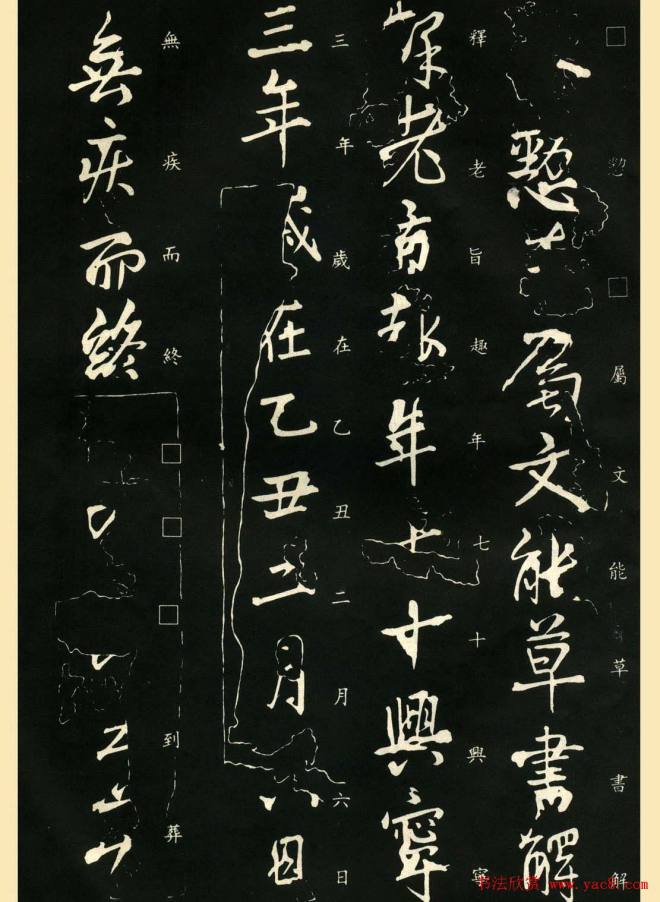 □懃□屬文能草書解
懃屬文能草書解
釋老旨趣年七十興寧
釋老旨趣年七十興寧
三年歲在乙丑二月六日
三年歲在乙丑二月六日
無疾而終□□□到葬
無疾而終
书法欣赏 www.yac8.com